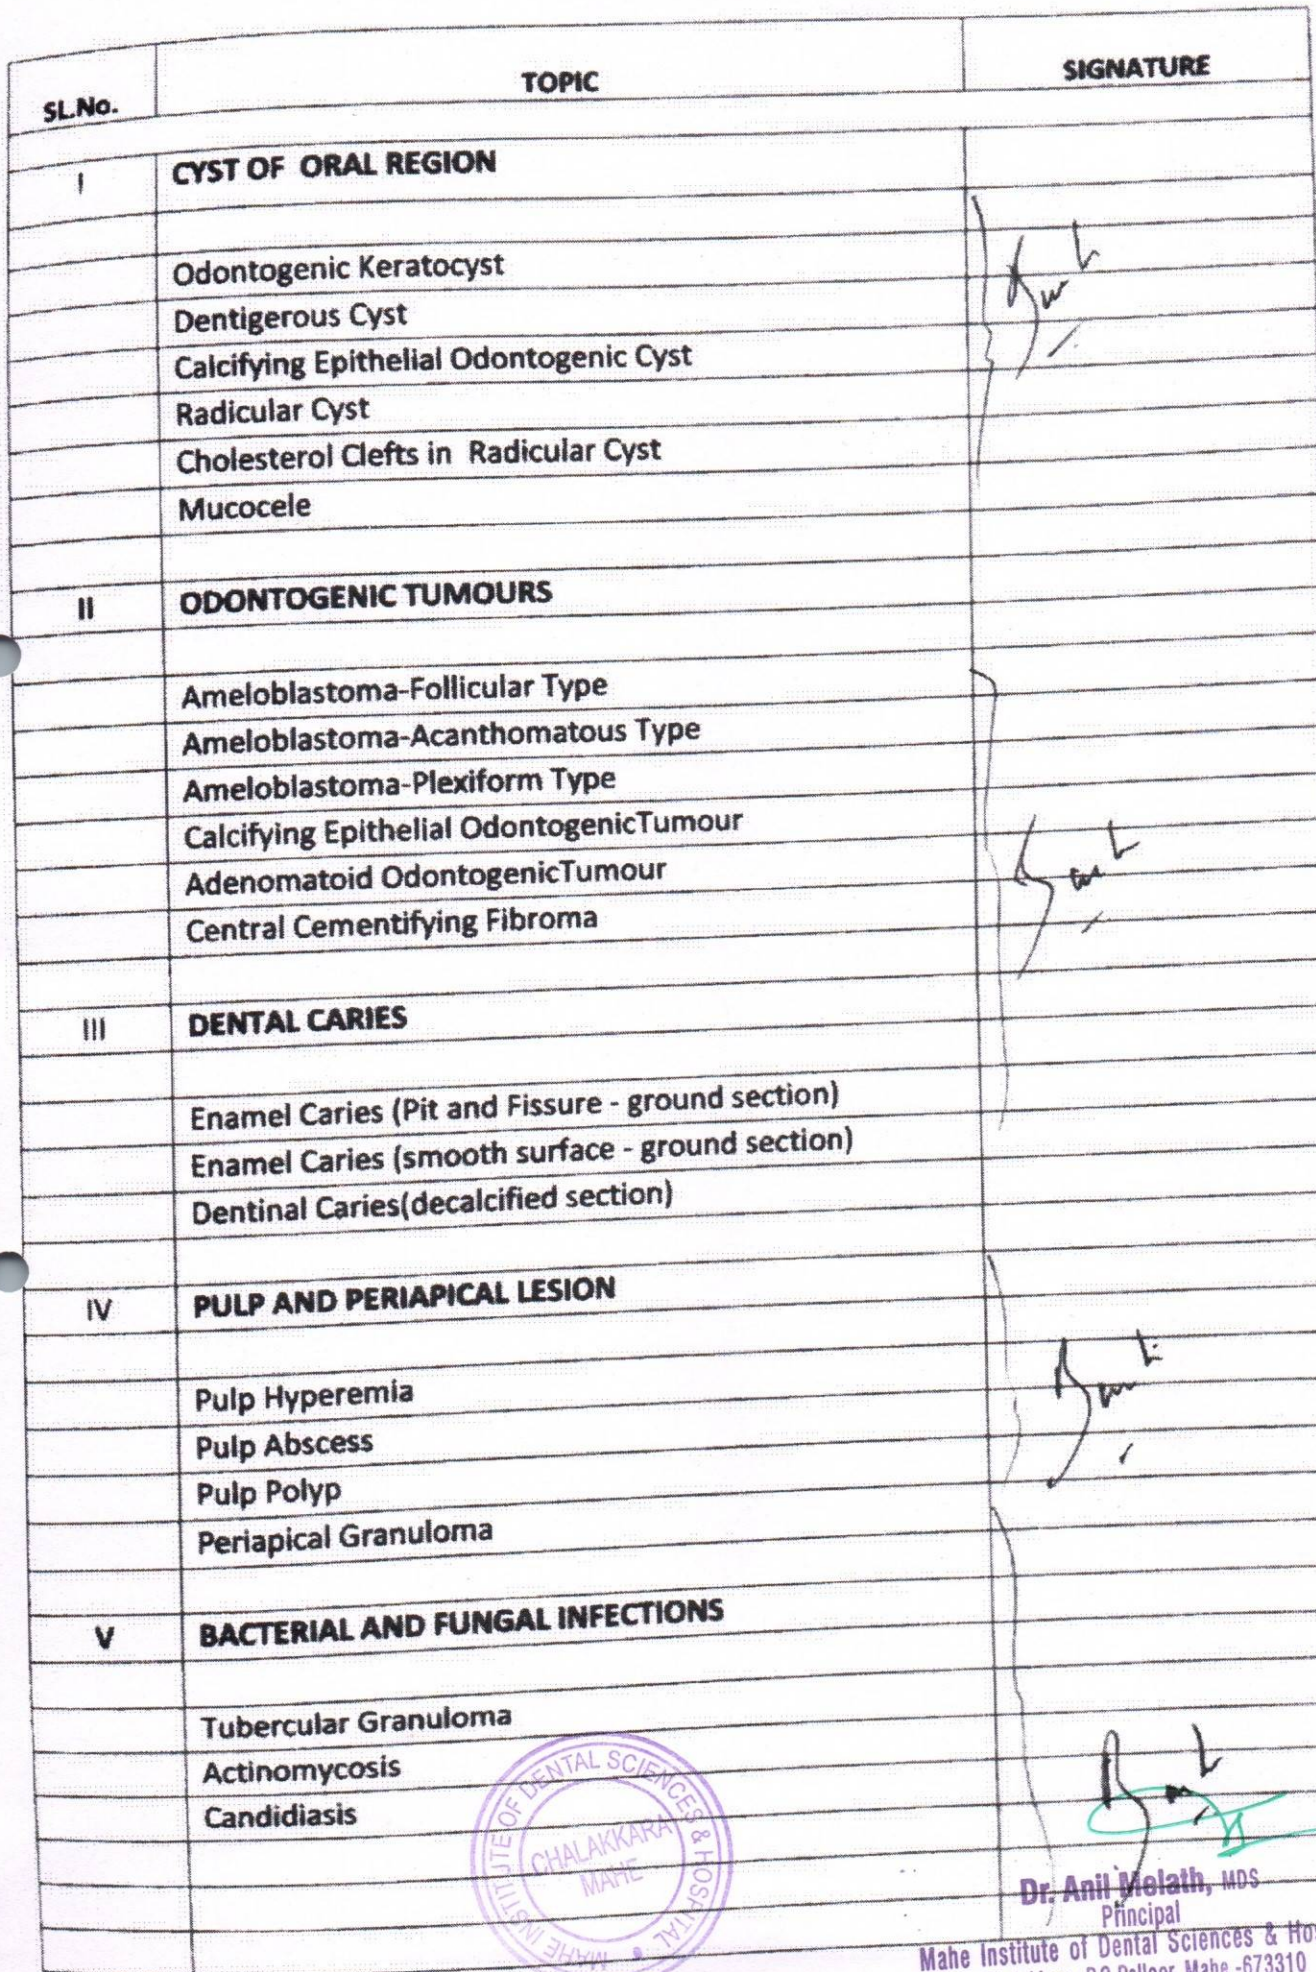 SL.No. TOPIC SIGNATURE
I CYST OF ORAL REGION
Odontogenic Keratocyst
Dentigerous Cyst
Calcifying Epithelial Odontogenic Cyst
Radicular Cyst
Cholesterol Clefts in Radicular Cyst
Mucocele
II ODONTOGENIC TUMOURS
Ameloblastoma-Follicular Type
Ameloblastoma-Acanthomatous Type
Ameloblastoma-Plexiform Type
Calcifying Epithelial OdontogenicTumour
Adenomatoid OdontogenicTumour
Central Cementifying Fibroma
III DENTAL CARIES
Enamel Caries (Pit and Fissure - ground section)
Enamel Caries (smooth surface - ground section)
Dentinal Caries(decalcified section)
IV PULP AND PERIAPICAL LESION
Pulp Hyperemia
Pulp Abscess
Pulp Polyp
Periapical Granuloma
V BACTERIAL AND FUNGAL INFECTIONS
Tubercular Granuloma
Actinomycosis
Candidiasis
MAHE INSTITUTE OF DENTAL SCIENCES & HOSPITAL
CHALAKKARA
MAHE
Dr. Anil Melath, MDS
Principal
Mahe Institute of Dental Sciences & Hos
P.O Palloor, Mahe -673310